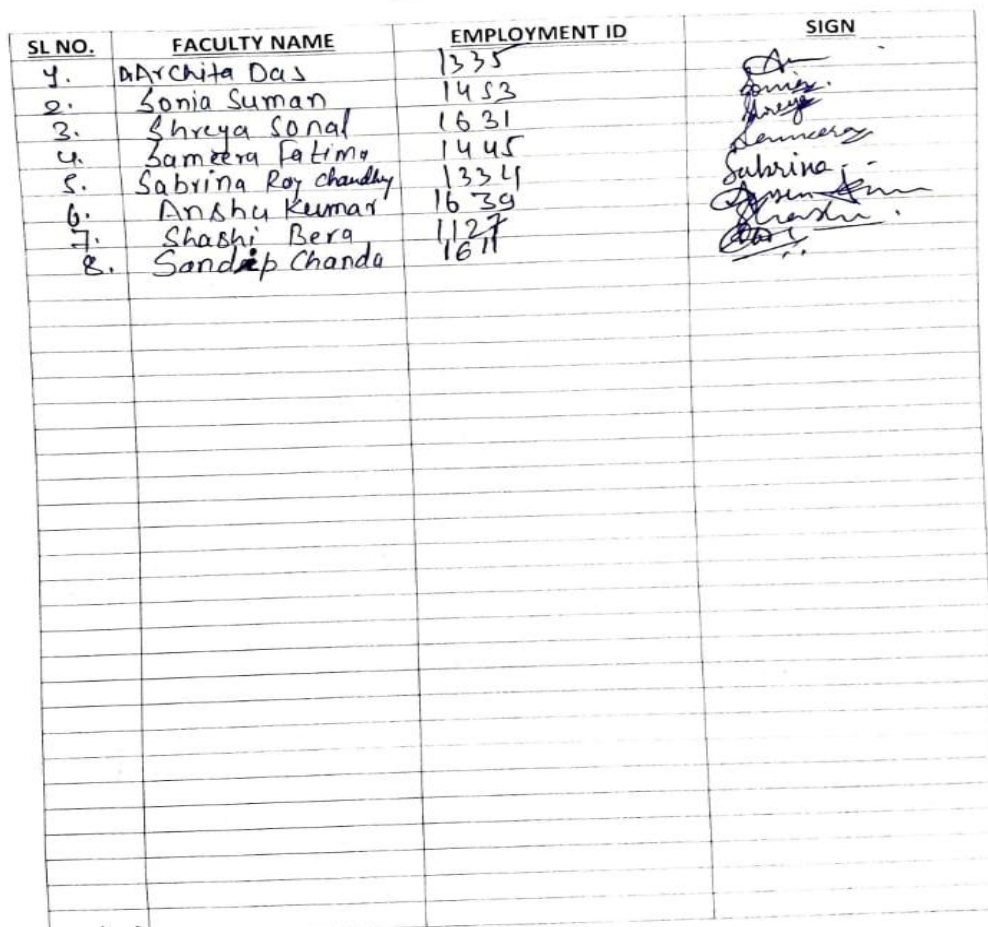 SL NO. FACULTY NAME EMPLOYMENT ID SIGN
1. Archita Das 1335
2. Sonia Suman 1453 Sonia
3. Shreya Sonal 1631 Shreya
4. Sameera Fatima 1445 Sameera
5. Sabrina Roy Chaudhuy 1334 Sabrina
6. Anshu Kumar 1639
7. Shashi Bera 1127 Shashi
8. Sandip Chanda 1611